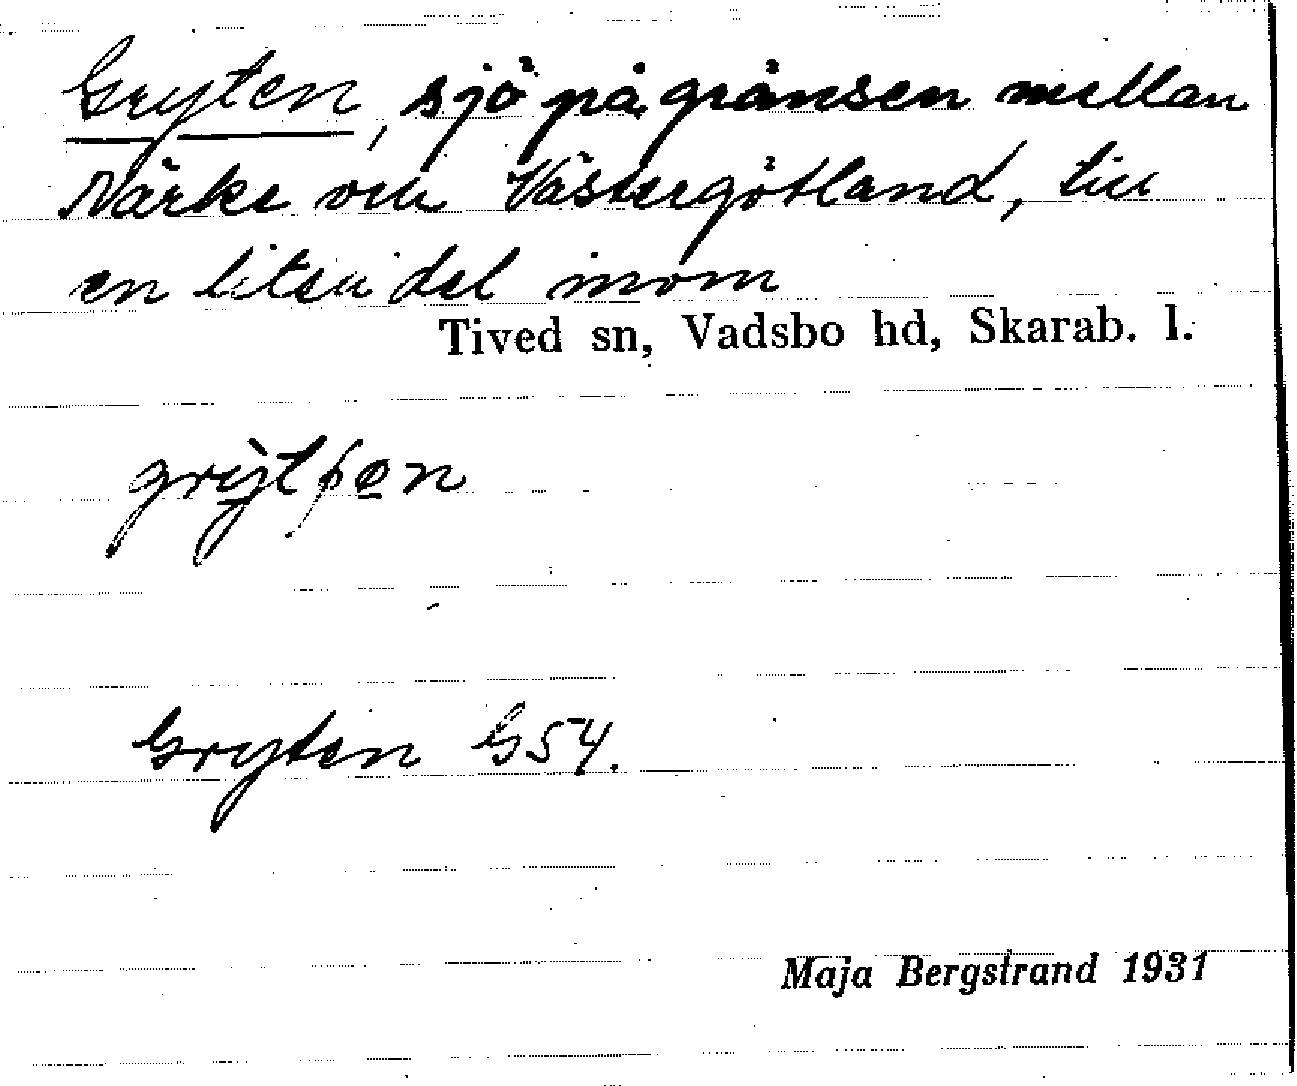 Gryten, sjö på gränsen mellan
Närke och Västergötland, till
en liten del inom
Tived sn, Vadsbo hd, Skarab. l.
Gryten G54.
Maja Bergstrand 1931